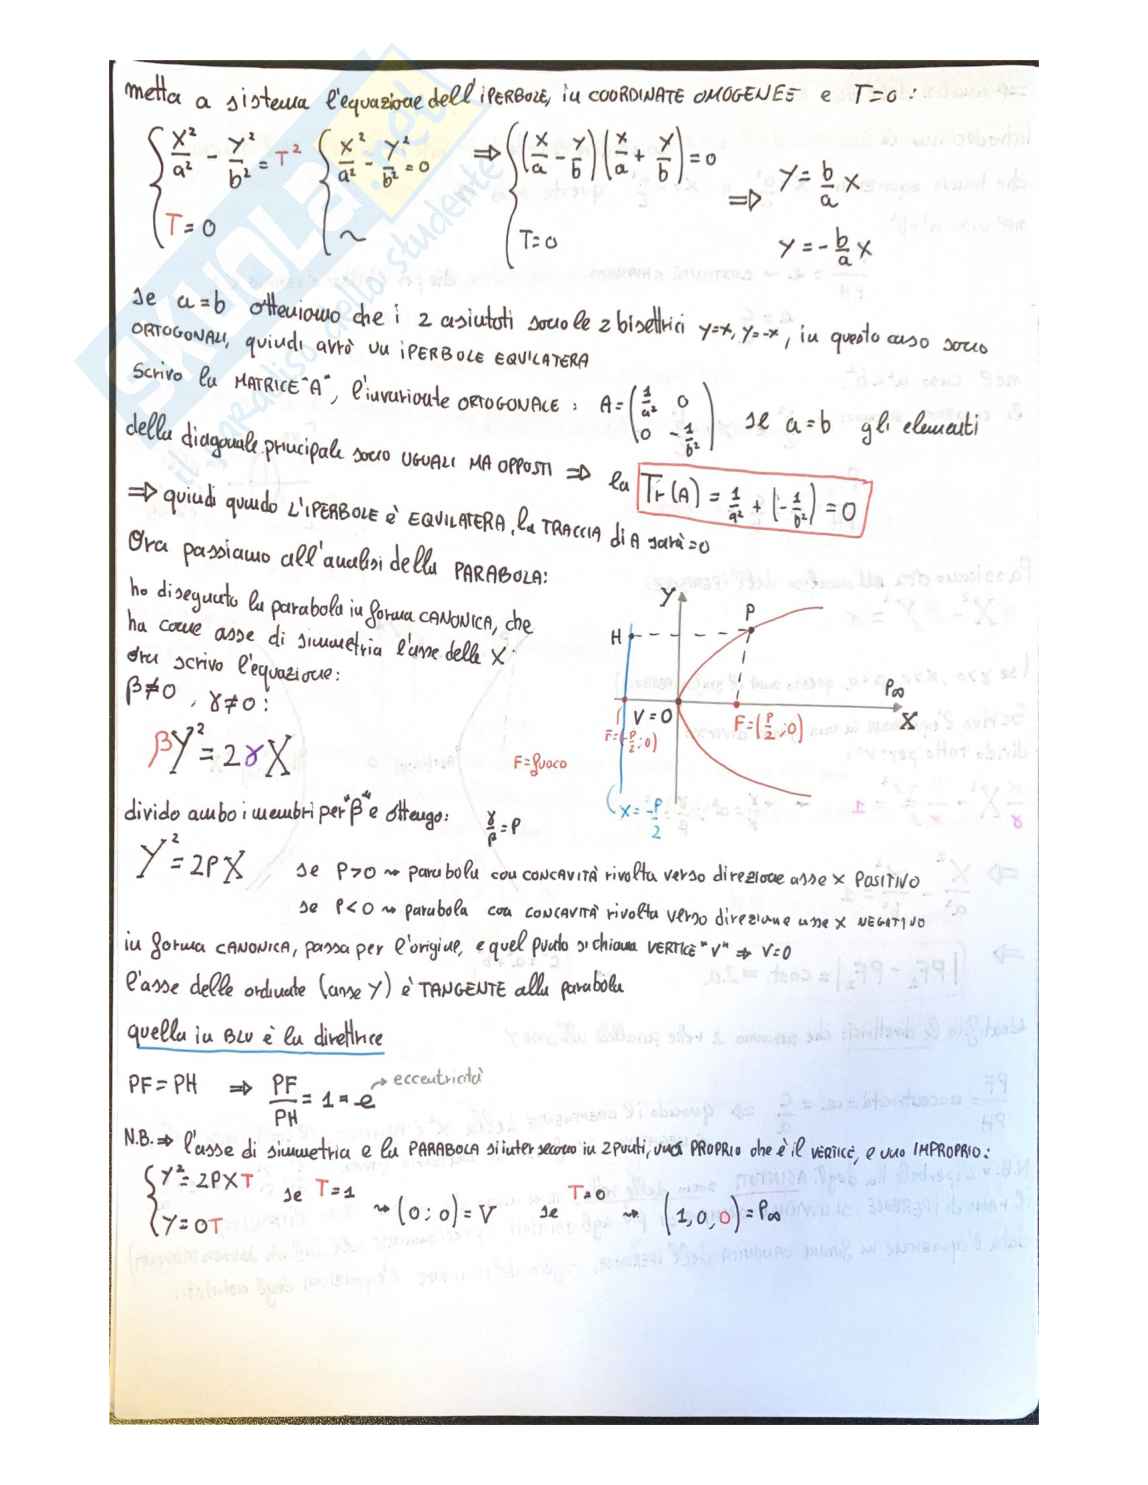 metta a sistema l'equazione dell'IPERBOLE, in COORDINATE OMOGENEE e T=0:
{ X²/a² - Y²/b² = T² { X²/a² - Y²/b² = 0 ⇒ { (X/a - Y/b)(X/a + Y/b) = 0 ⇒ Y = b/a X
{ T = 0 { ~ { T=0 Y = -b/a X
se a=b otteniamo che i 2 asintoti sono le 2 bisettrici y=x, y=-x, in questo caso sono
ORTOGONALI, quindi avrò un IPERBOLE EQUILATERA
Scrivo la MATRICE "A", l'invariante ORTOGONALE: A = (1/a² 0 0 -1/b²) se a=b gli elementi
della diagonale principale sono UGUALI MA OPPOSTI ⇒ la Tr(A) = 1/a² + (-1/b²) = 0
⇒ quindi quando L'IPERBOLE è EQUILATERA, la TRACCIA di A sarà =0
Ora passiamo all'analisi della PARABOLA:
ho disegnato la parabola in forma CANONICA, che
ha come asse di simmetria l'asse delle X.
Ora scrivo l'equazione:
β≠0, γ≠0:
βY² = 2γX
F=fuoco
Y
P
H
P∞
X
V=0
F=(P/2;0)
F=(-P/2;0)
X = -P/2
divido ambo i membri per "β" e ottengo: γ/β = P
Y² = 2PX se P>0 ⇝ parabola con CONCAVITÀ rivolta verso direzione asse X POSITIVO
se P<0 ⇝ parabola con CONCAVITÀ rivolta verso direzione asse X NEGATIVO
in forma CANONICA, passa per l'origine, e quel punto si chiama VERTICE "V" ⇒ V=0
l'asse delle ordinate (asse Y) è TANGENTE alla parabola
quella in BLU è la direttrice
PF = PH ⇒ PF/PH = 1 = e → eccentricità
N.B. ⇒ l'asse di simmetria e la PARABOLA si intersecano in 2 punti, uno PROPRIO che è il VERTICE, e uno IMPROPRIO:
{ Y² = 2PXT se T=1 ⇝ (0;0) = V se T=0 ⇝ (1,0,0) = P∞
{ Y = 0T
SKUOLA.net
il paradiso dello studente